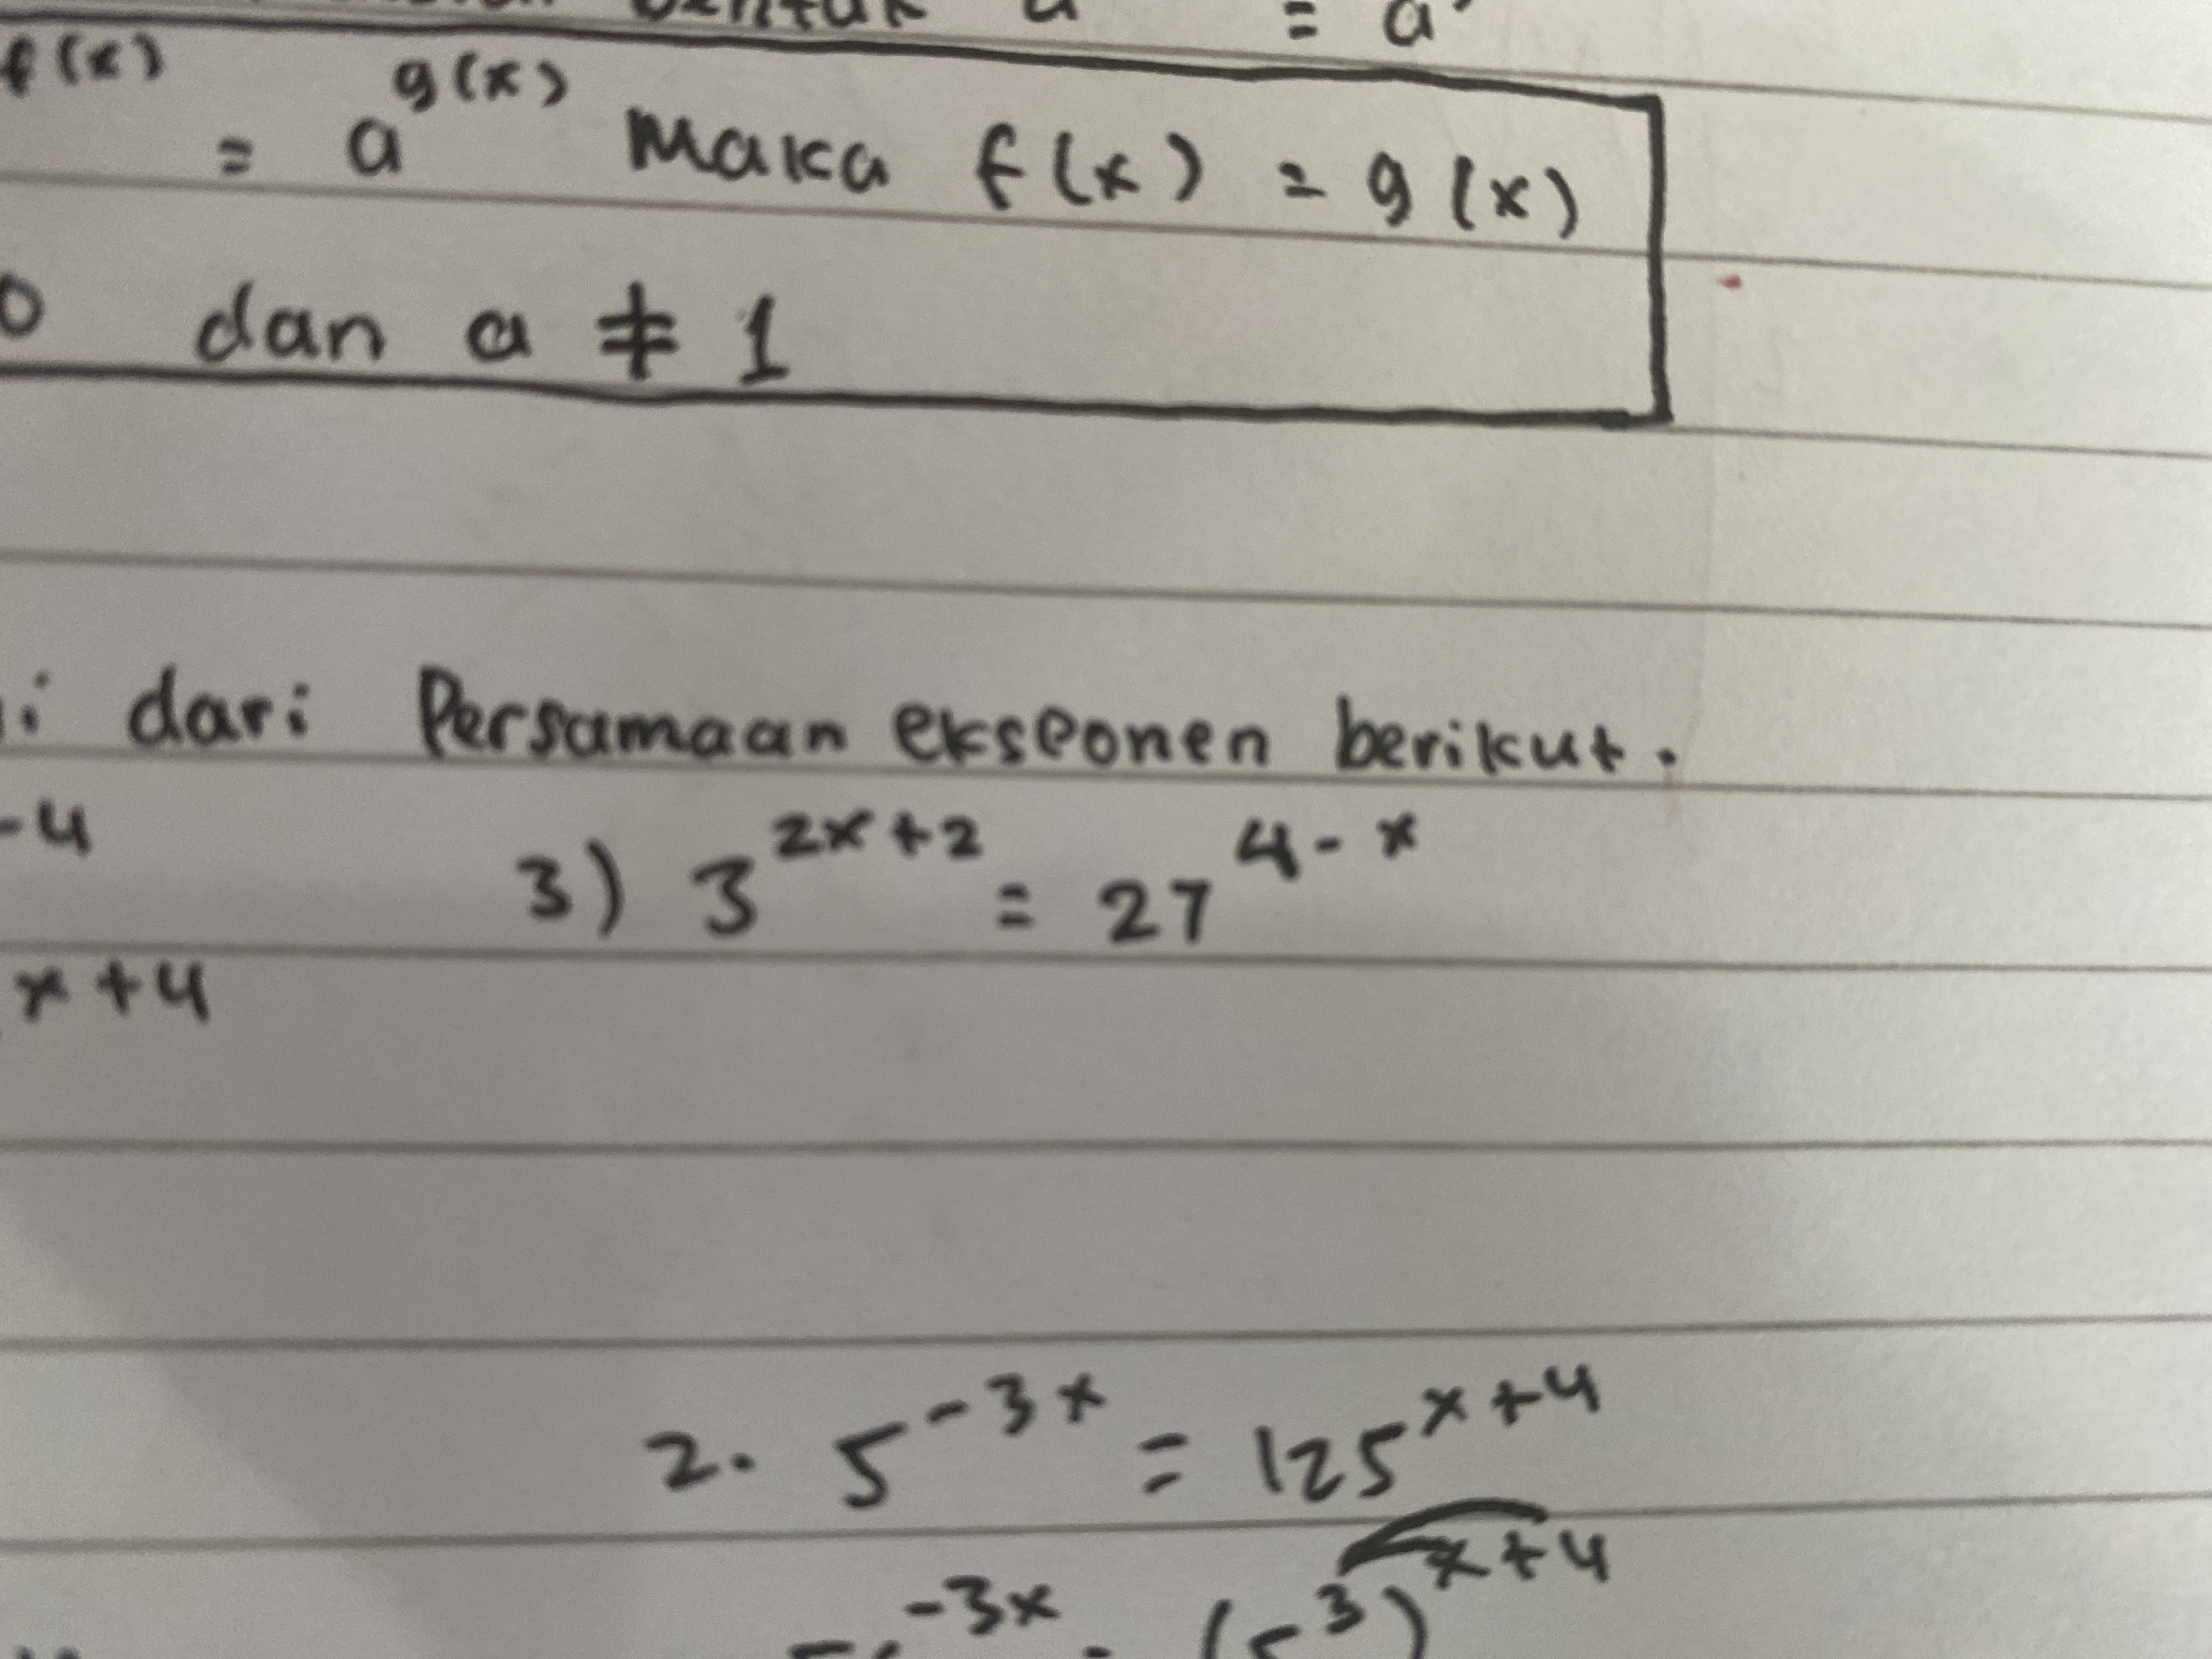 = a
f(x) = a^g(x) Maka f(x) = g(x)
0 dan a ≠ 1
dari Persamaan eksponen berikut.
-4
3) 3^2x+2 = 27^4-x
x+4
2. 5^-3x = 125^x+4
^-3x (5^3)^x+4